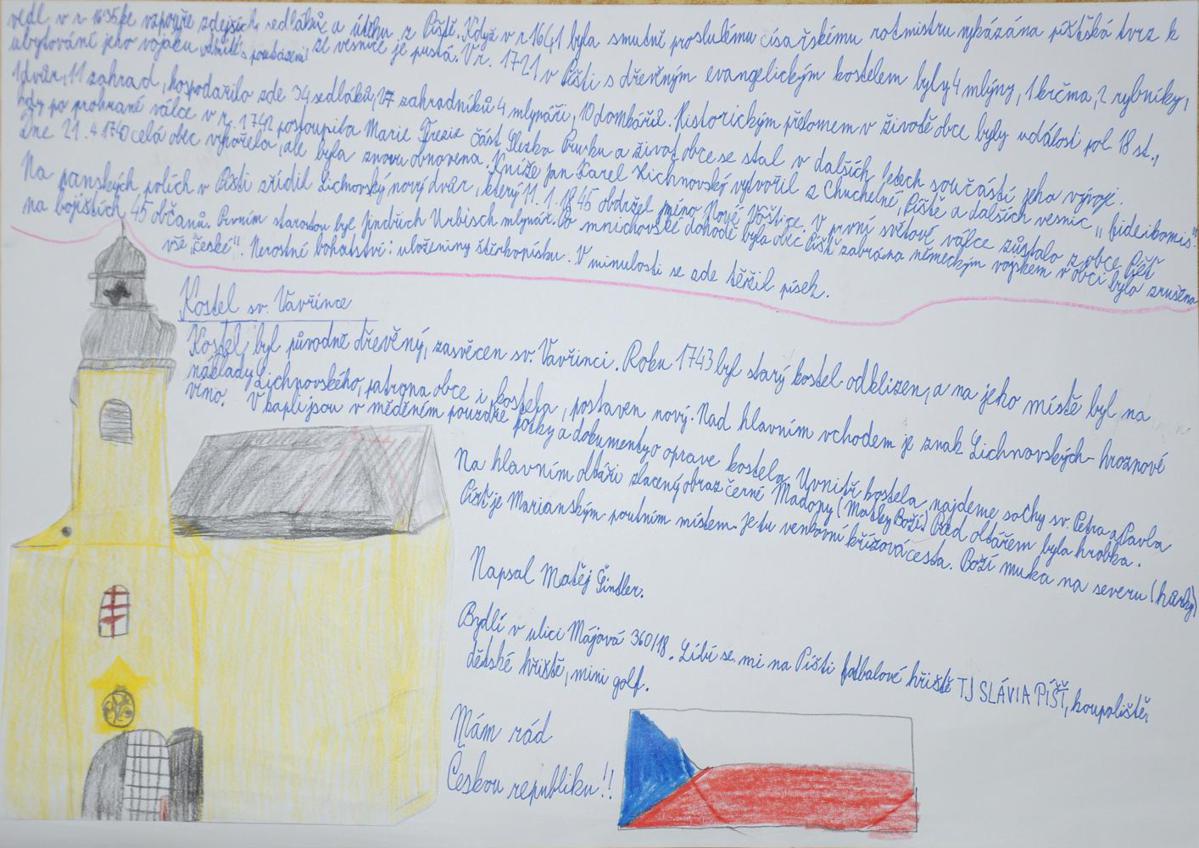 vedl v r. 1635 ke vzpouře zdejších sedláků a útěku z Píště. Když v r. 1641 byla smutně proslulému císařskému rotmistru vykázána píšťská tvrz k
ubytování jeho vojáků zjistil s pozbasem že vesnice je pustá. V r. 1721 v Píšti s dřevěným evangelickým kostelem byly 4 mlýny, 1 krčma, 2 rybníky,
1 dvůr, 11 zahrad, hospodařilo zde 34 sedláků, 27 zahradníků 4 mlynáři, 10 domkářů. Historickým přelomem v životě obce byly události pol 18 st.,
kdy po prohrané válce v r. 1742 postoupila Marie Terezie část Slezka Prusku a život obce se stal v dalších letech součástí jeho vývoje.
Dne 21.4.1740 celá obec vyhořela, ale byla znovu obnovena. Kníže Jan Karel Lichnovský vytvořil z Chuchelné, Píště a dalších vesnic „fideikomis"
Na panských polích v Píšti zřídil Lichnovský nový dvůr, který 11.1.1846 obdržel jméno Nové Vóštice. V první světové válce zůstalo z obce Píšť
na bojištích 45 občanů. Prvním starostou byl Jindřich Urbisch mlynář. Po mnichovské dohodě byla obec Píšť zabrána německým vojskem v obci bylo zrušeno
vše „české". Nerostné bohatství: uloženiny štěrkopísku. V minulosti se zde těžil písek.
Kostel sv. Vavřince
Kostel byl původně dřevěný, zasvěcen sv. Vavřinci. Roku 1743 byl starý kostel odklizen, a na jeho místě byl na
náklady Lichnovského, patrona obce i kostela, postaven nový. Nad hlavním vchodem je znak Lichnovských - hroznové
víno. V kapli jsou v měděném pouzdře fotky a dokumenty o opravě kostela. Uvnitř kostela najdeme sochy sv. Petra a Pavla
Na hlavním oltáři zlacený obraz černé Madony (Matky Boží) Před oltářem byla hrobka.
Píšť je Marianským poutním místem. Je tu venkovní křížová cesta. Boží muka na severu (harky)
Napsal Matěj Šindler.
Bydlí v ulici Májová 360/18. Líbí se mi na Píšti fotbalové hřiště TJ SLÁVIA PÍŠŤ, koupoliště,
dětské hřiště, mini golf.
Mám rád
Českou republiku!!